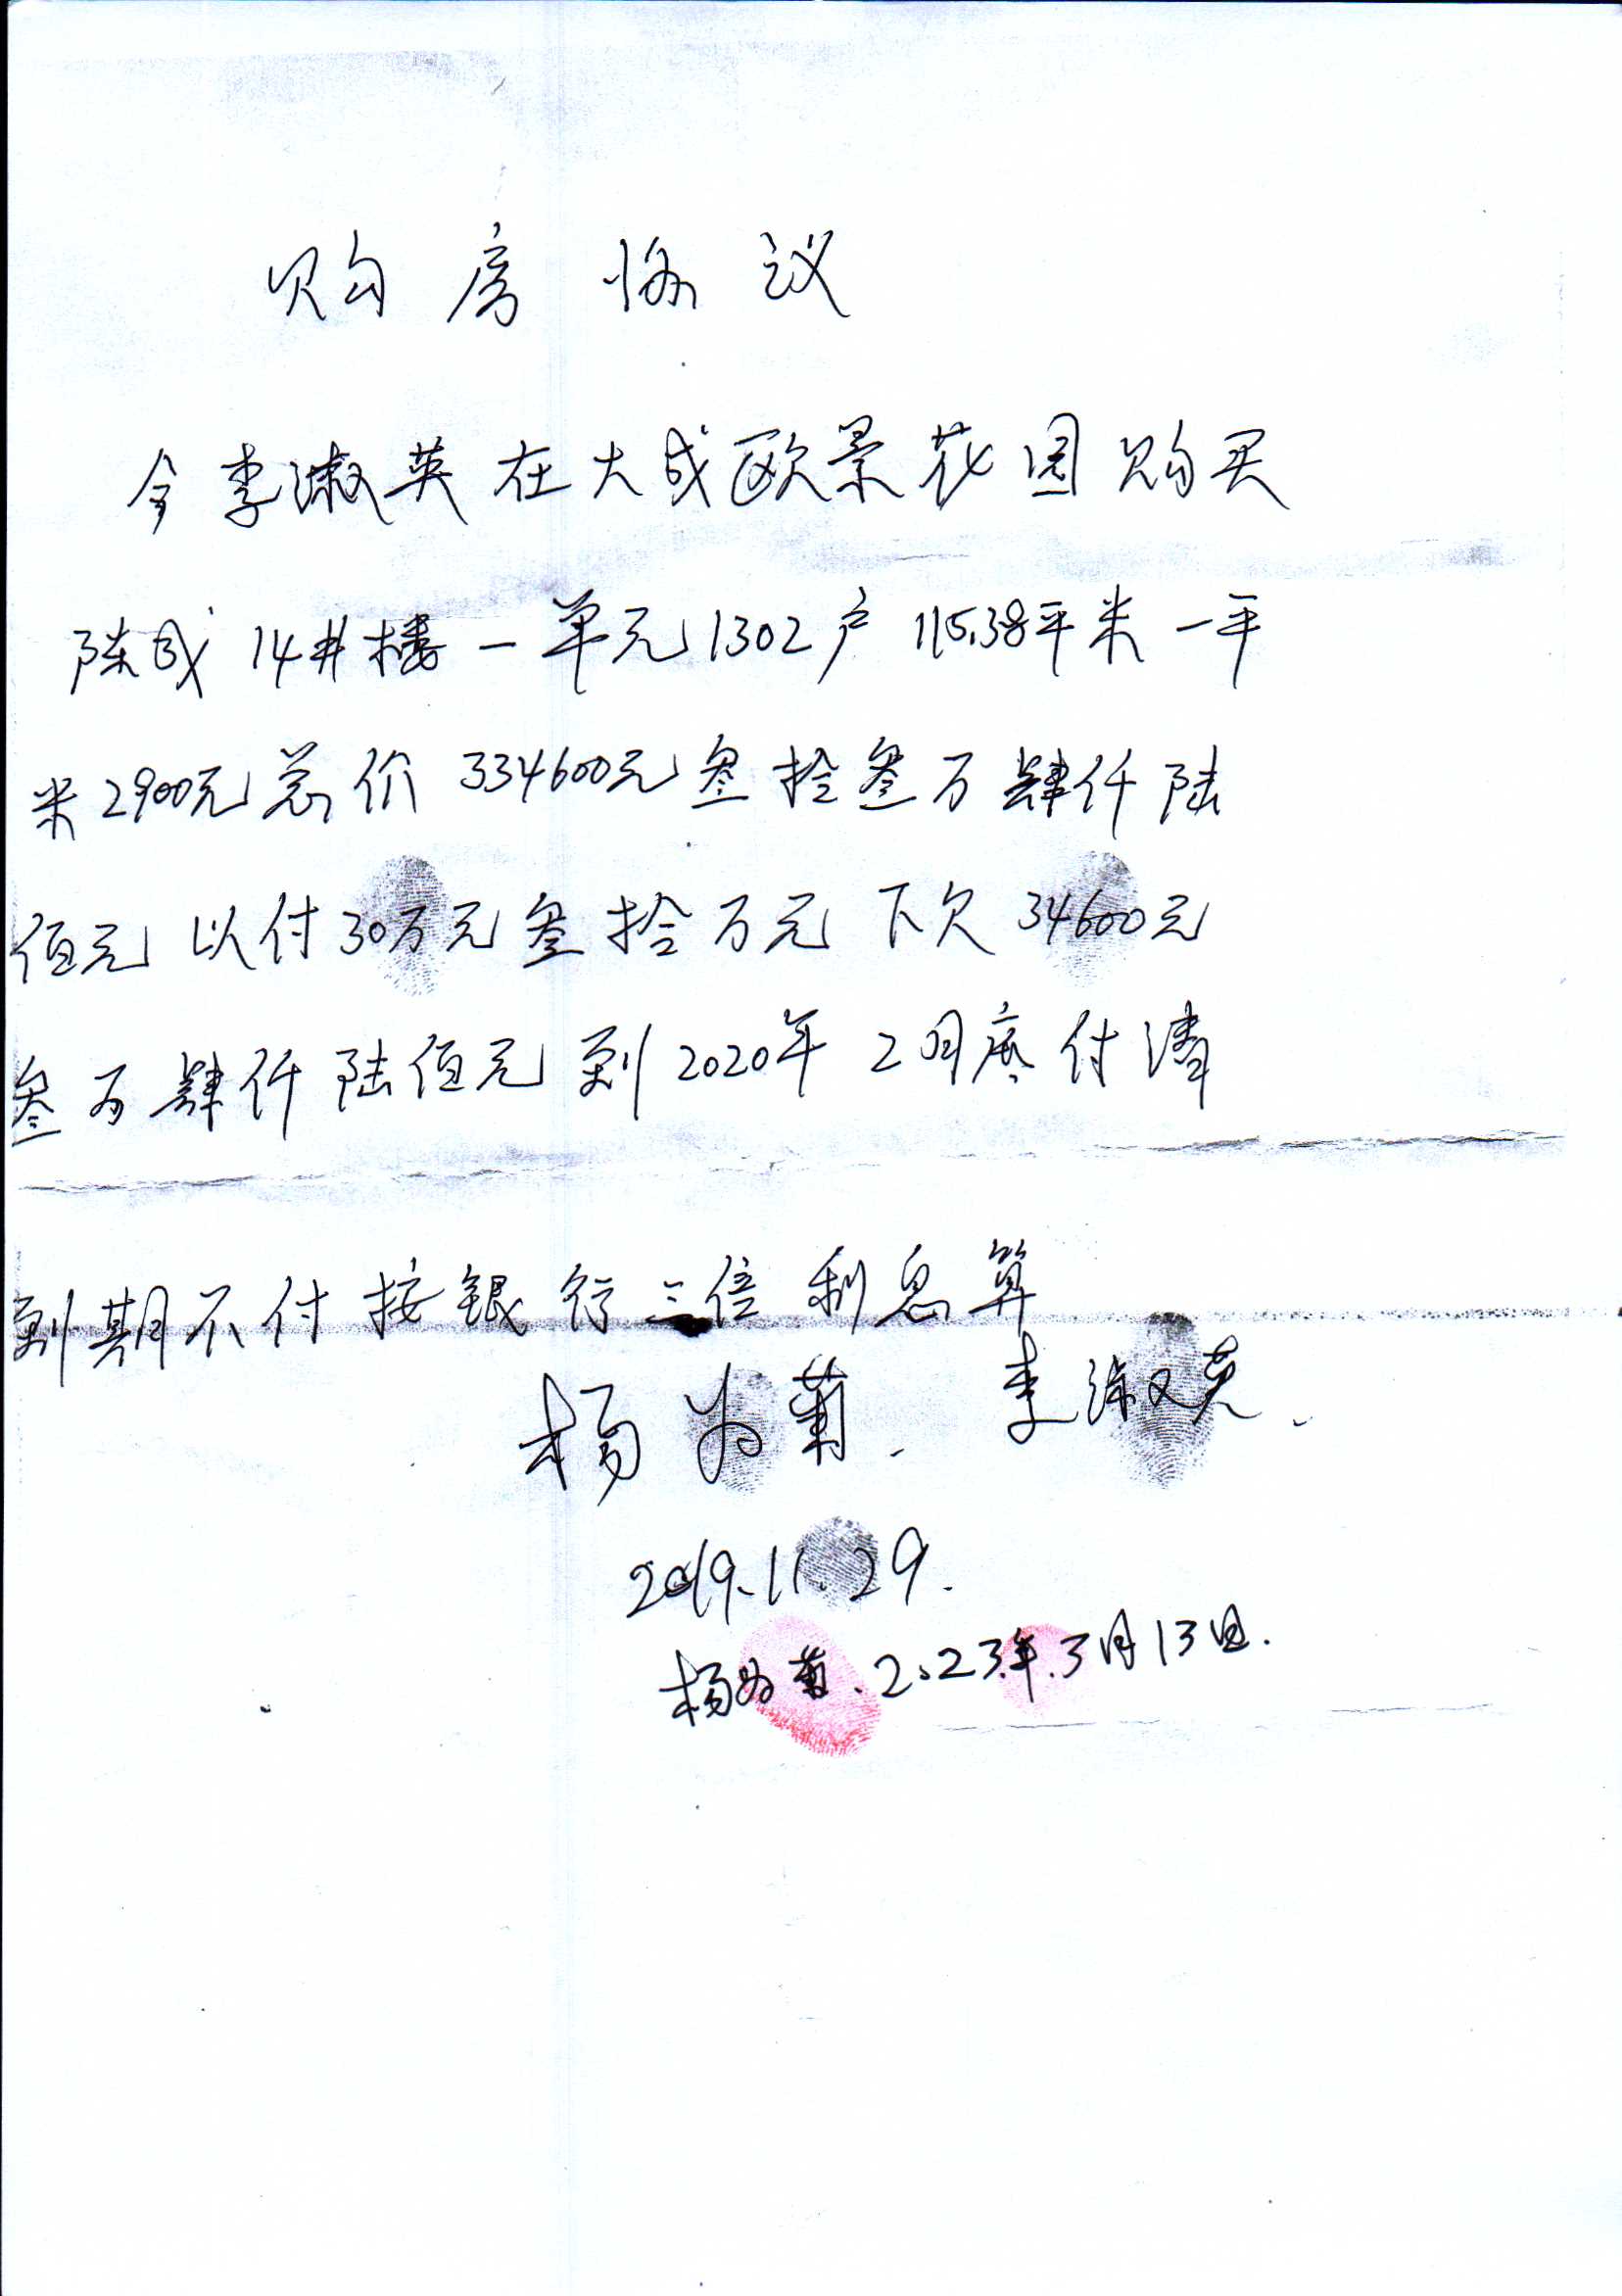 购房协议
今李淑英在大成欧景花园购买
陈成14井楼一单元1302户115.38平米一平
米2900元总价334600元叁拾叁万肆仟陆
佰元以付30万元叁拾万元下欠34600元
叁万肆仟陆佰元到2020年2月底付清
到期不付按银行三倍利息算
杨为菊. 李淑英.
2019.11.29.
杨为菊.2023年.3月13日.